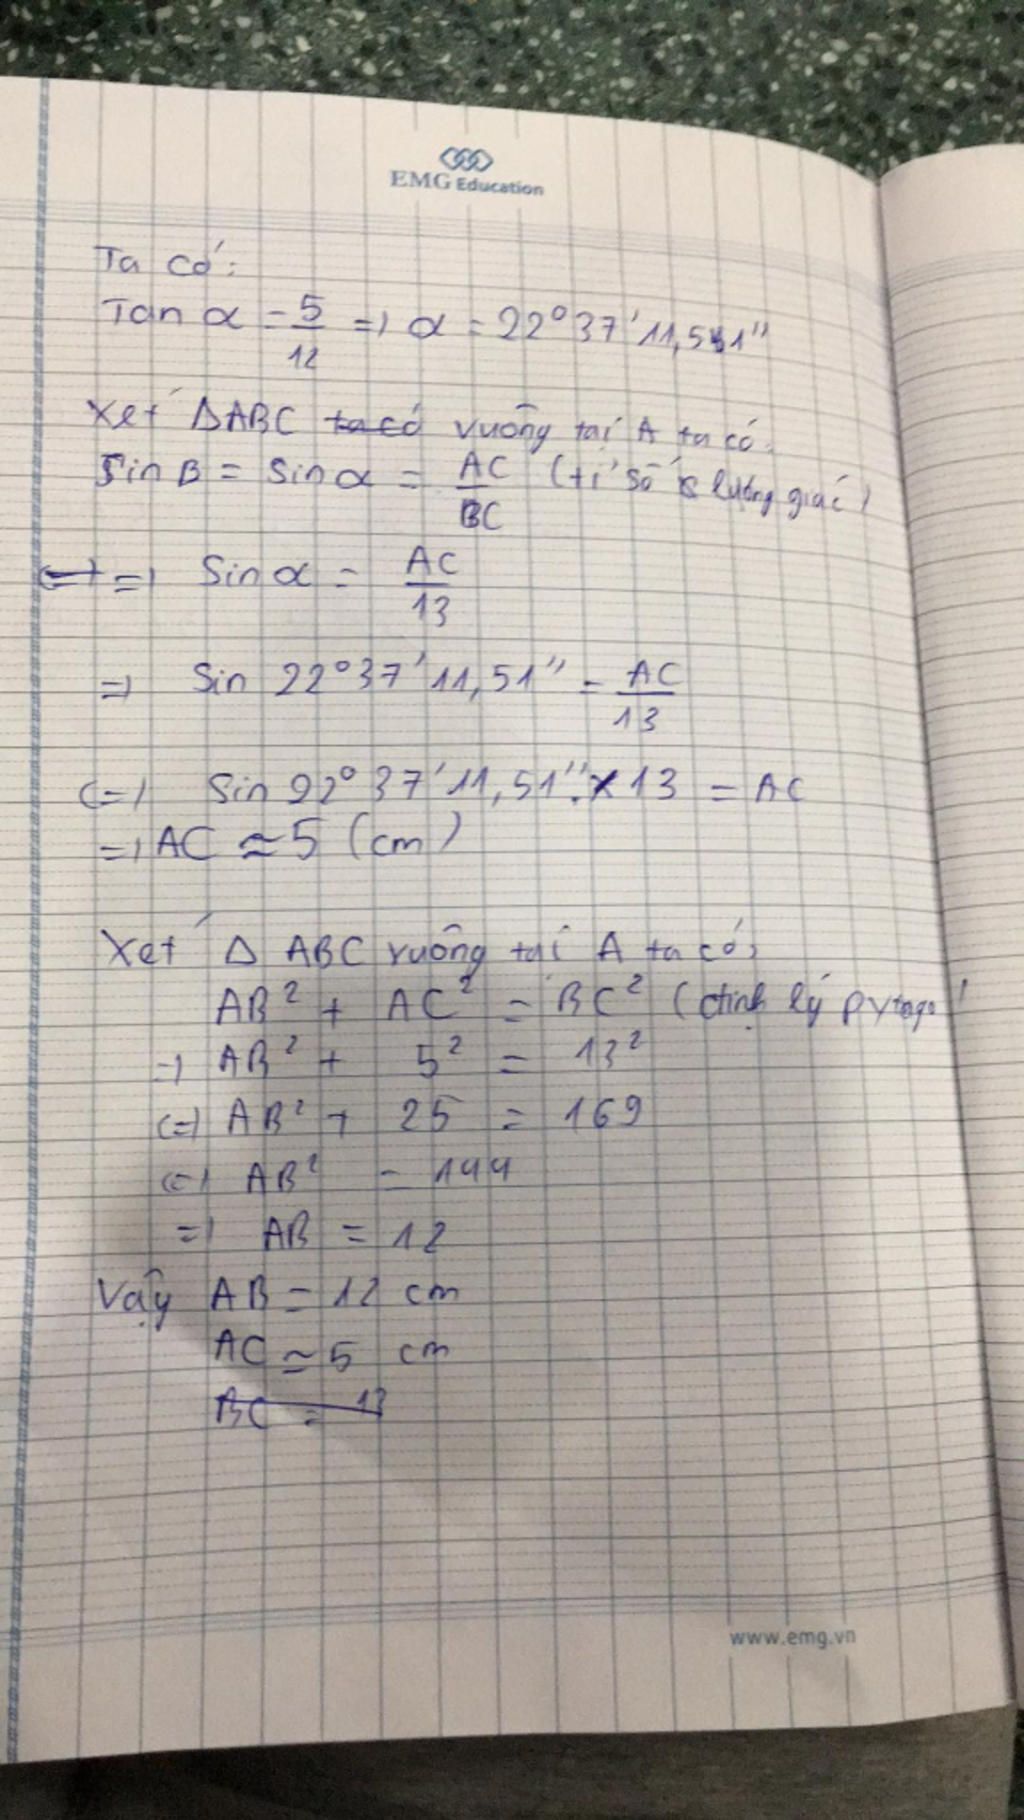 EMG Education
Ta có:
Tan α = 5/12 => α = 22°37'11,51"
Xét ΔABC ta có vuông tại A ta có:
Sin B = Sin α = AC/BC (tỉ số lượng giác)
=> Sin α = AC/13
=> Sin 22°37'11,51" = AC/13
<=> Sin 22°37'11,51" . x 13 = AC
=> AC ≈ 5 (cm)
Xét Δ ABC vuông tại A ta có,
AB² + AC² = BC² (định lý pytago)
=> AB² + 5² = 13²
<=> AB² + 25 = 169
<=> AB² = 144
=> AB = 12
Vậy AB = 12 cm
AC ≃ 5 cm
BC = 13
www.emg.vn